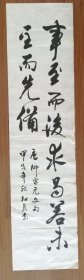 事至而後求曷若未
至而先備
唐柳宗元文句
甲戌年秋